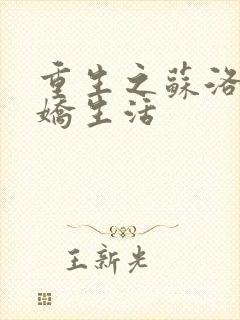 重生之蘇洛
嬌生活
王新光